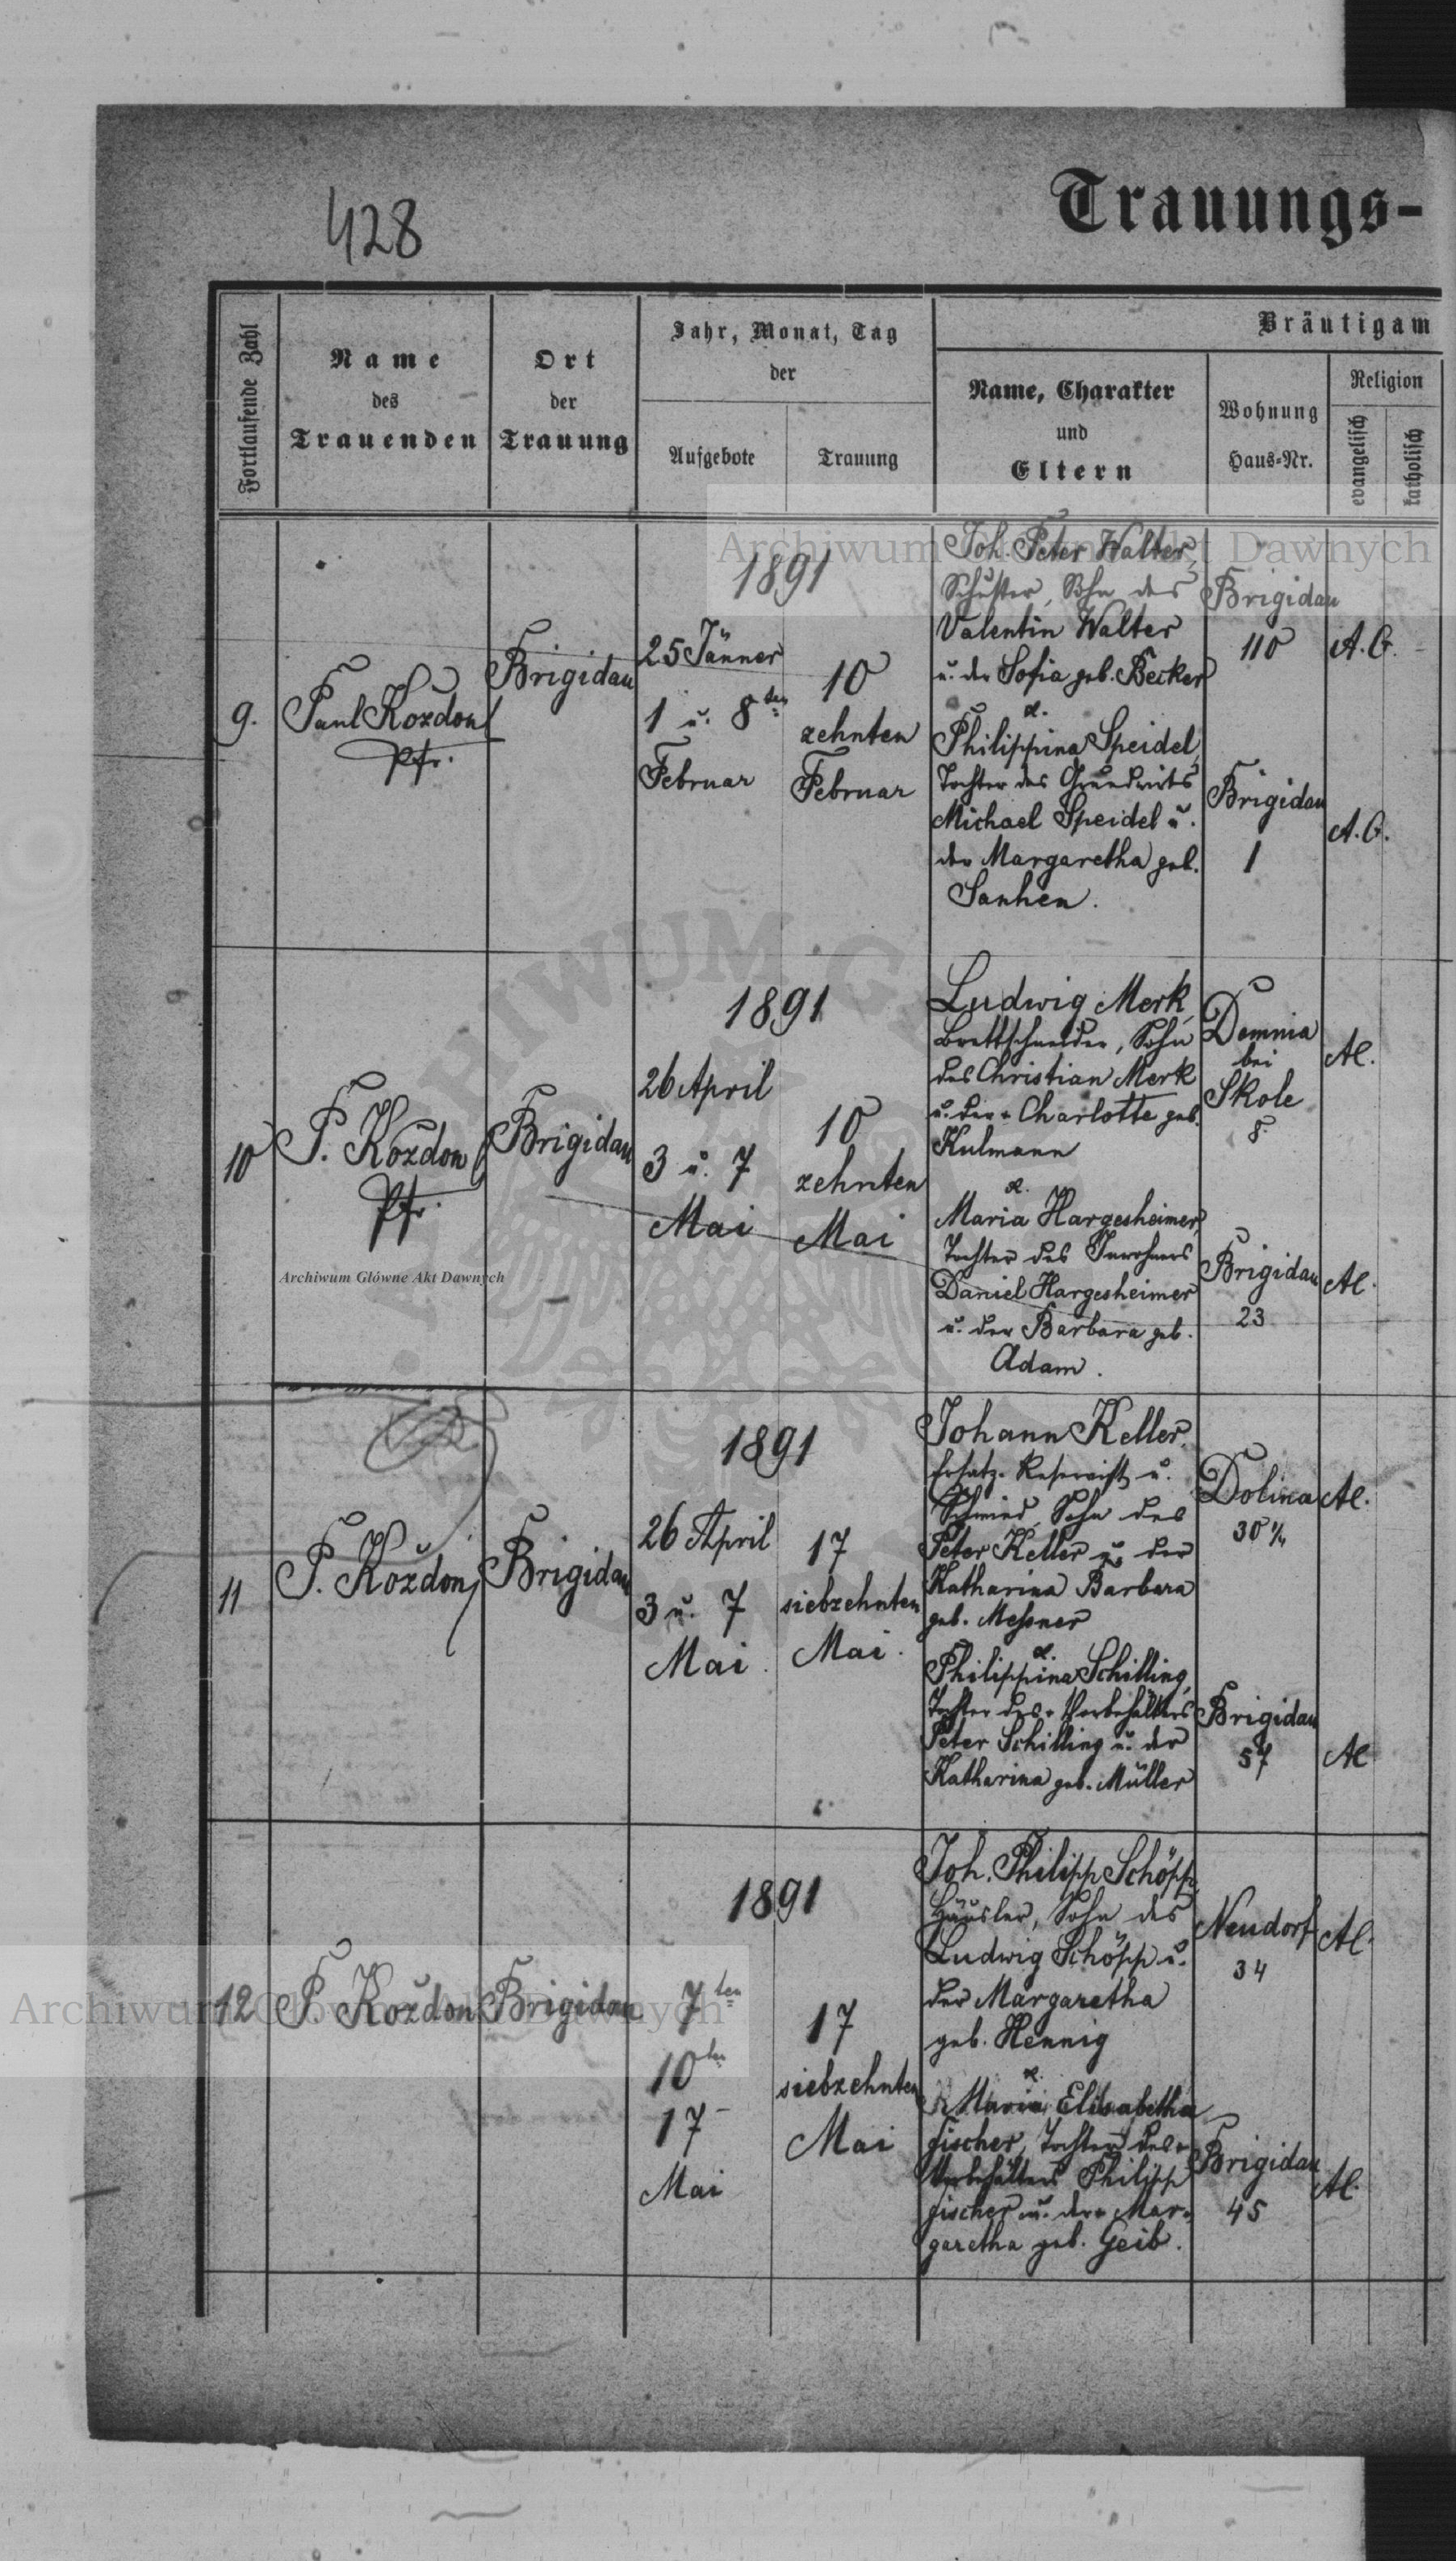 428
Trauungs-
Fortlaufende Zahl
Name
des
Trauenden
Ort
der
Trauung
Jahr, Monat, Tag
der
Aufgebote
Trauung
Bräutigam
Name, Charakter
und
Eltern
Wohnung
Haus-Nr.
Religion
evangelisch
katholisch
9.
Paul Kozdon
Pfr.
Brigidau
1891
25 Jänner
1 u. 8ten
Februar
10
zehnten
Februar
Joh. Peter Walter,
Schuster, Sohn des
Valentin Walter
u. der Sofia geb. Becker
&.
Philippina Speidel,
Tochter des Grundwirts
Michael Speidel u.
der Margaretha geb.
Sanhen.
Brigidau
110
A. C.
Brigidau
1
A. C.
10
P. Kozdon
Pfr.
Brigidau
1891
26 April
3 u. 7
Mai
10
zehnten
Mai
Ludwig Merk,
Brettschneider, Sohn
des Christian Merk
u. der Charlotte geb.
Kulmann
&.
Maria Hargesheimer,
Tochter des Inwohners
Daniel Hargesheimer
u. der Barbara geb.
Adam.
Demnia
bei
Skole
8.
AC.
Brigidau
23
AC.
11
P. Kozdon
Brigidau
1891
26 April
3 u. 7
Mai.
17
siebzehnten
Mai.
Johann Keller,
Ersatz-Reservist u.
Schmied, Sohn des
Peter Keller u. der
Katharina Barbara
geb. Messner
&.
Philippina Schilling,
Tochter des Vorbehälters
Peter Schilling u. der
Katharina geb. Müller
Dolina
AC.
Brigidau
57
AC
12
P. Kozdon
Brigidau
1891
7ten
10ten
17
Mai
17
siebzehnten
Mai
Joh. Philipp Schöpp,
Häusler, Sohn des
Ludwig Schöpp u.
der Margaretha
geb. Hennig
&.
Maria Elisabetha
Fischer, Tochter des
Vorbehälters Philipp
Fischer u. der Mar-
garetha geb. Geib.
Neudorf
34
AC.
Brigidau
45
AC.
Archiwum Główne Akt Dawnych
Archiwum Główne Akt Dawnych
Archiwum Główne Akt Dawnych